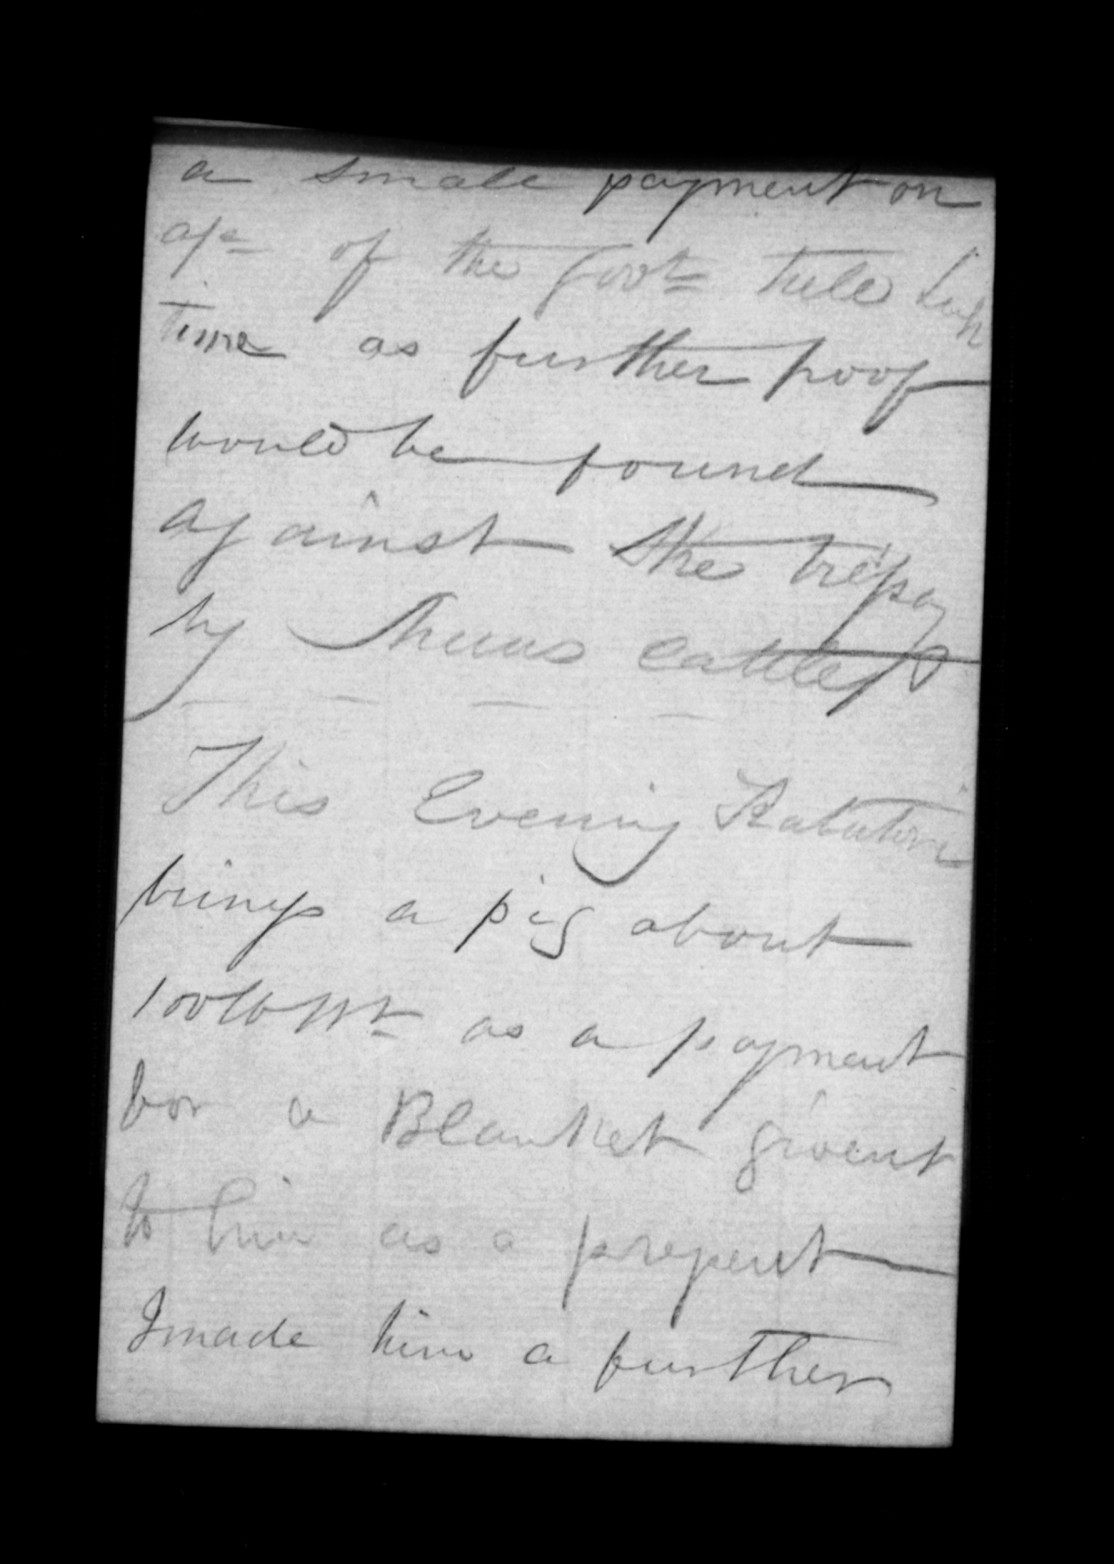 a small payment on
a/c of the Govt. title such
time as further proof
would be found
against the trespass
by Thms cattle
This Evening
brings a pig about
100lb Wt as a payment
for a Blanket givent
to him as a present
I made him a further